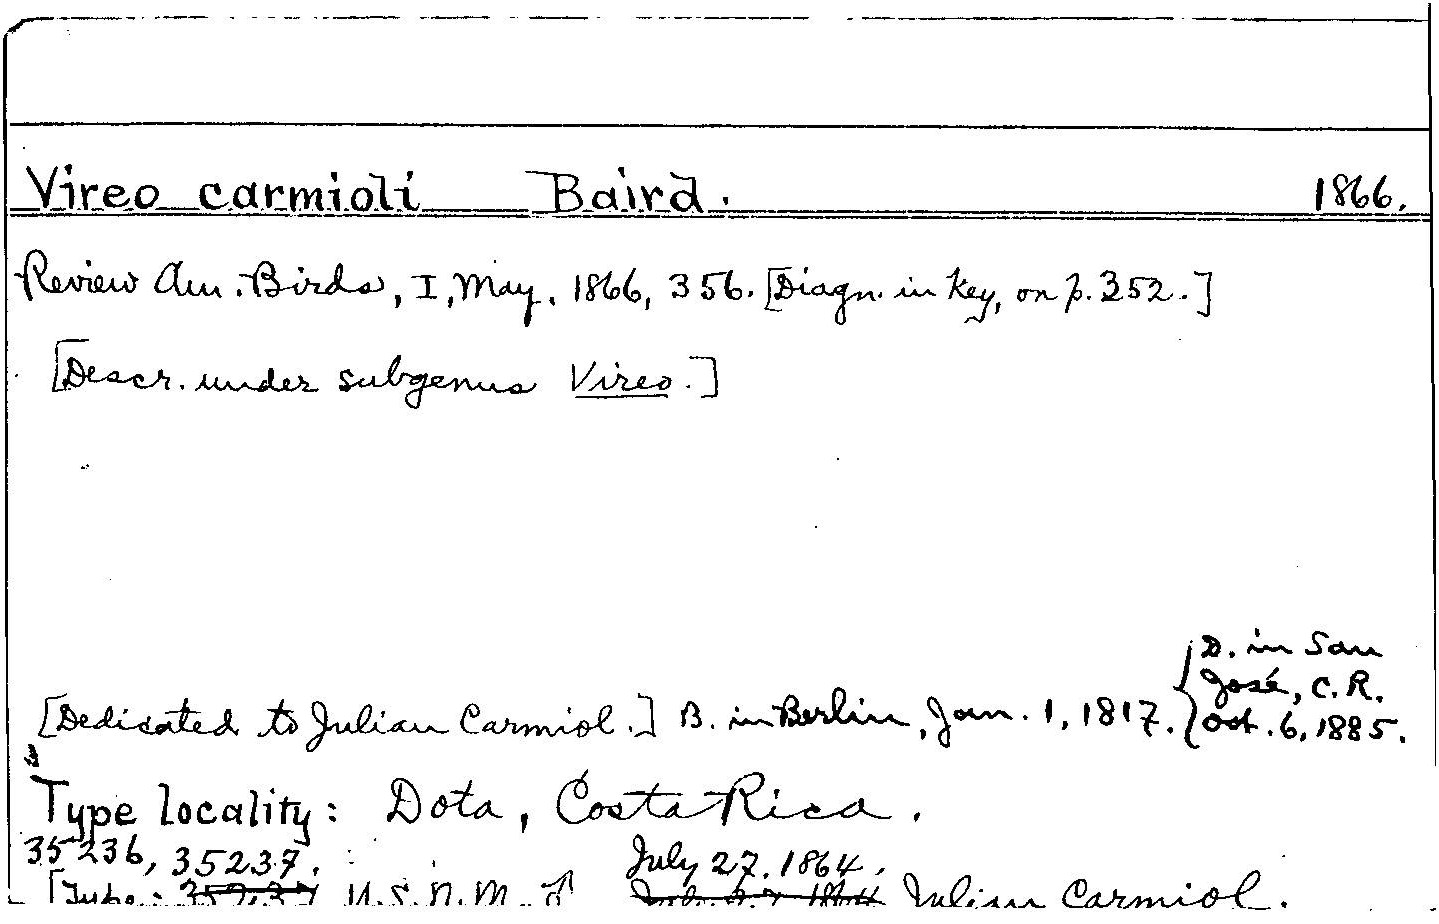 Vireo carmioli Baird. 1866.
Review Am. Birds, I, May, 1866, 356. [Diagn. in Key, on p. 352.]
[Descr. under subgenus Vireo.]
D. in San
José, C.R.
[Dedicated to Julian Carmiol.] B. in Berlin, Jan. 1, 1817. Oct. 6, 1885.
Type locality: Dota, Costa Rica.
35236, 35237. July 27, 1864,
[Type: 35237 U.S.N.M. ♂ Julian Carmiol.